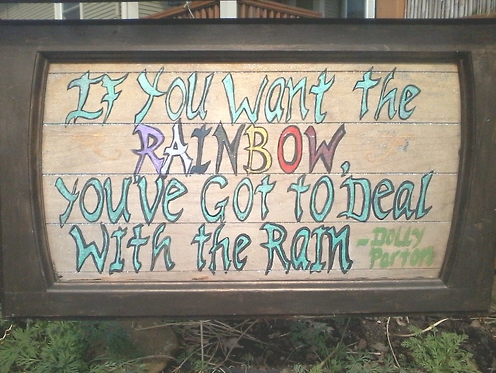 If You Want the
RAINBOW,
You've Got to Deal
With the Rain
- Dolly
Parton